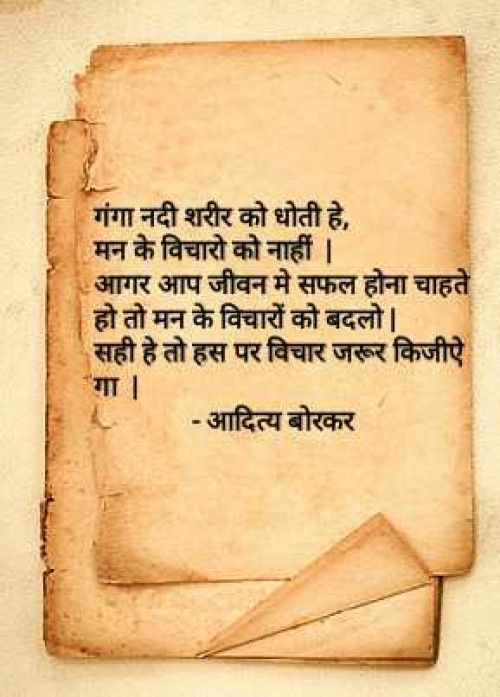 गंगा नदी शरीर को धोती हे,
मन के विचारो को नाहीं |
आगर आप जीवन मे सफल होना चाहते
हो तो मन के विचारों को बदलो |
सही हे तो हस पर विचार जरूर किजीऐ
गा |
- आदित्य बोरकर